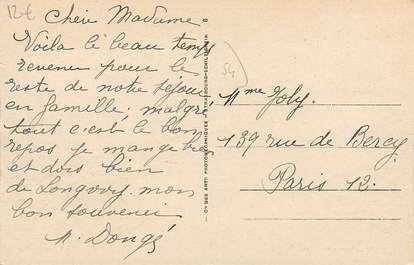 12€
Chère Madame
Voila le beau temps
revenu pour le
reste de notre séjour
en famille. malgré
tout c'est le bon
repos je mange bien
et dors bien
de Longwy. mon
bon souvenir
M.
54
Mme Joly.
139 rue de Bercy
Paris 12.